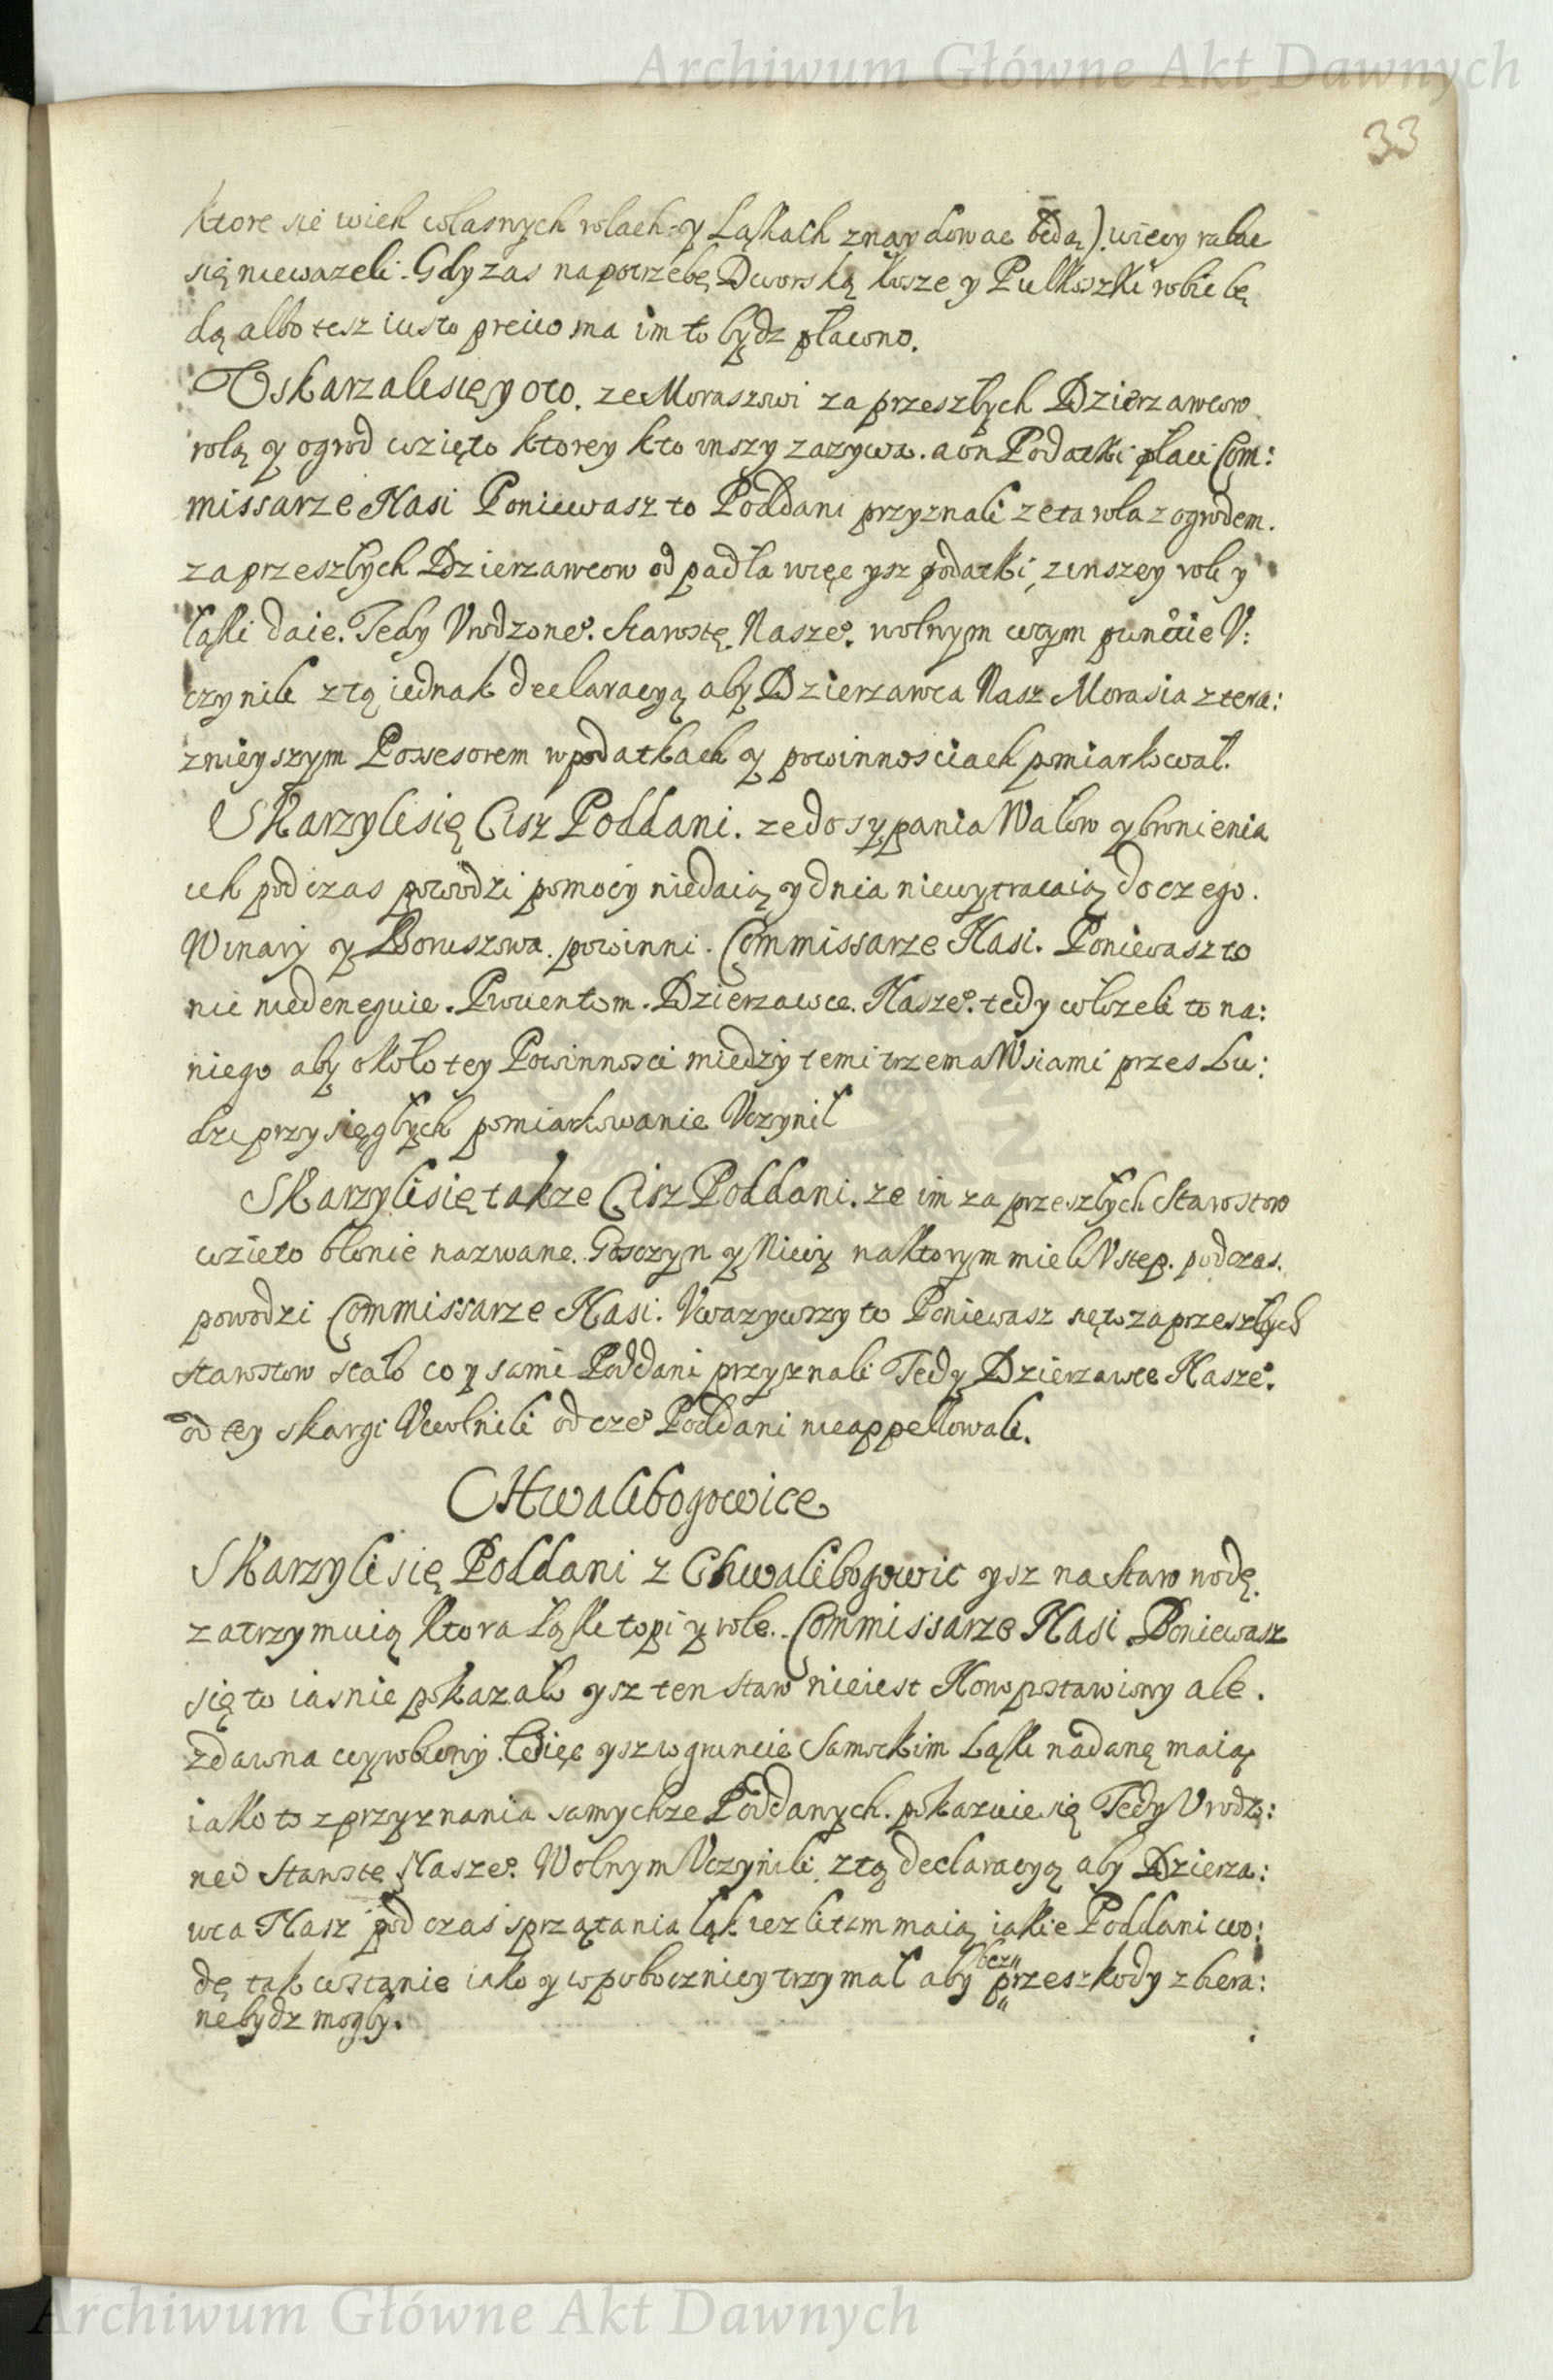 Archiwum Główne Akt Dawnych
33
ktore się wich własnych rolach y Ląkach znaydowac będą). więcy rabac
się niewazeli. Gdy zas na potrzebę Dworską kosze y Pułkoszki robic bę
dą albo tesz iusto precio ma im to bydz płacono.
Uskarzali się y oto. ze Moraszowi za przeszłych Dzierzawcow
rolą y ogrod wzięto ktorey kto inszy zazywa. a on Podatki płaci Com:
missarze Nasi Poniewasz to Poddani przyznali ze ta rola z ogrodem.
za przeszłych Dzierzawcow odpadła więc ysz podatki, z inszey roli y
łąki daie. Tedy Vrodzone°. Starostę. Nasze°. wolnym wtym puncie V:
czynili ztą iednak declaracyą aby Dzierzawca Nasz Morasia z tera:
znieyszym Possesorem w podatkach y powinnosciach pomiarkował.
Skarzyli się Cisz Poddani. ze do sypania Wałow y bronienia
ich pod czas powodzi pomocy niedaią y dnia niewytracaią do czego.
Winary y Boruszowa. powinni. Commissarze Nasi. Poniewasz to
nic niedeneguie. Prouentom. Dzierzawce. Nasze°. tedy włozeli to na:
niego aby około tey Powinnosci miedzy temi trzema Wsiami przes Lu:
dzi przysięgłych pomiarkowanie Vczynił
Skarzyli się takze Cisz Poddani. ze im za przeszłych Starostow
wzieto błonie nazwane. Goszczyn y Niwy na ktorym mieli Vstęp. podczas.
powodzi Commissarze Nasi. Vwazywszy to Poniewasz się to za przeszłych
starostow stało co y sami Poddani przyznali Tedy Dzierzawce Nasze°.
od tey skargi Vwolnili od cze° Poddani nieappellowali.
CHwalibogowice
Skarzyli się Poddani z Chwalibogowic ysz na staw wodę.
zatrzymuią ktora Łąki topi y role. Commissarze Nasi Poniewasz
się to iasnie pokazało ysz ten staw nieiest Nowo postawiony ale.
zdawna wyrobiony. Więc ysz w gruncie Samockim Ląki nadanę maią
iako to z przyznania samychze Poddanych. pokazuie się Tedy Vrodzo:
ne° Starostę Nasze°. Wolnym Vczynili. ztą declaracyą aby Dzierza:
wca Nasz pod czas sprzątania łąk iezli tam maią iakie Poddani wo:
dę tak w stanie iako y w pobocznicy trzymał aby bez przeszkody zbera:
ne bydz mogły.
Archiwum Główne Akt Dawnych